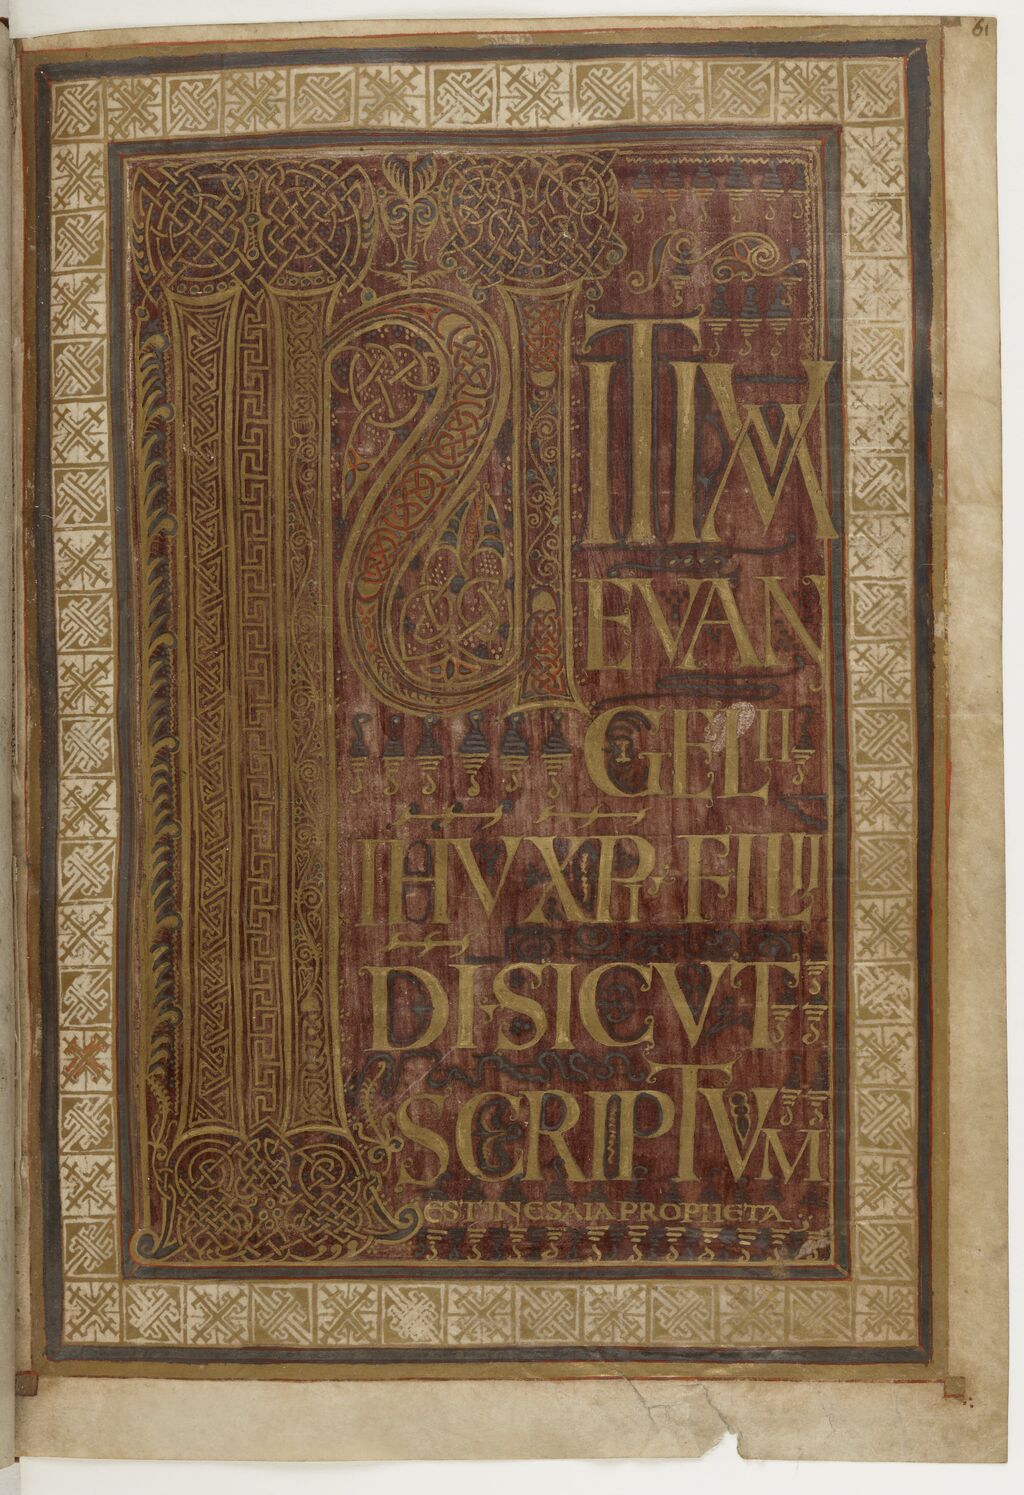 61
INITIVM
EVAN
GELII
IHV XPI FILII
DI SICVT
SCRIPTVM
EST IN ESAIA PROPHETA